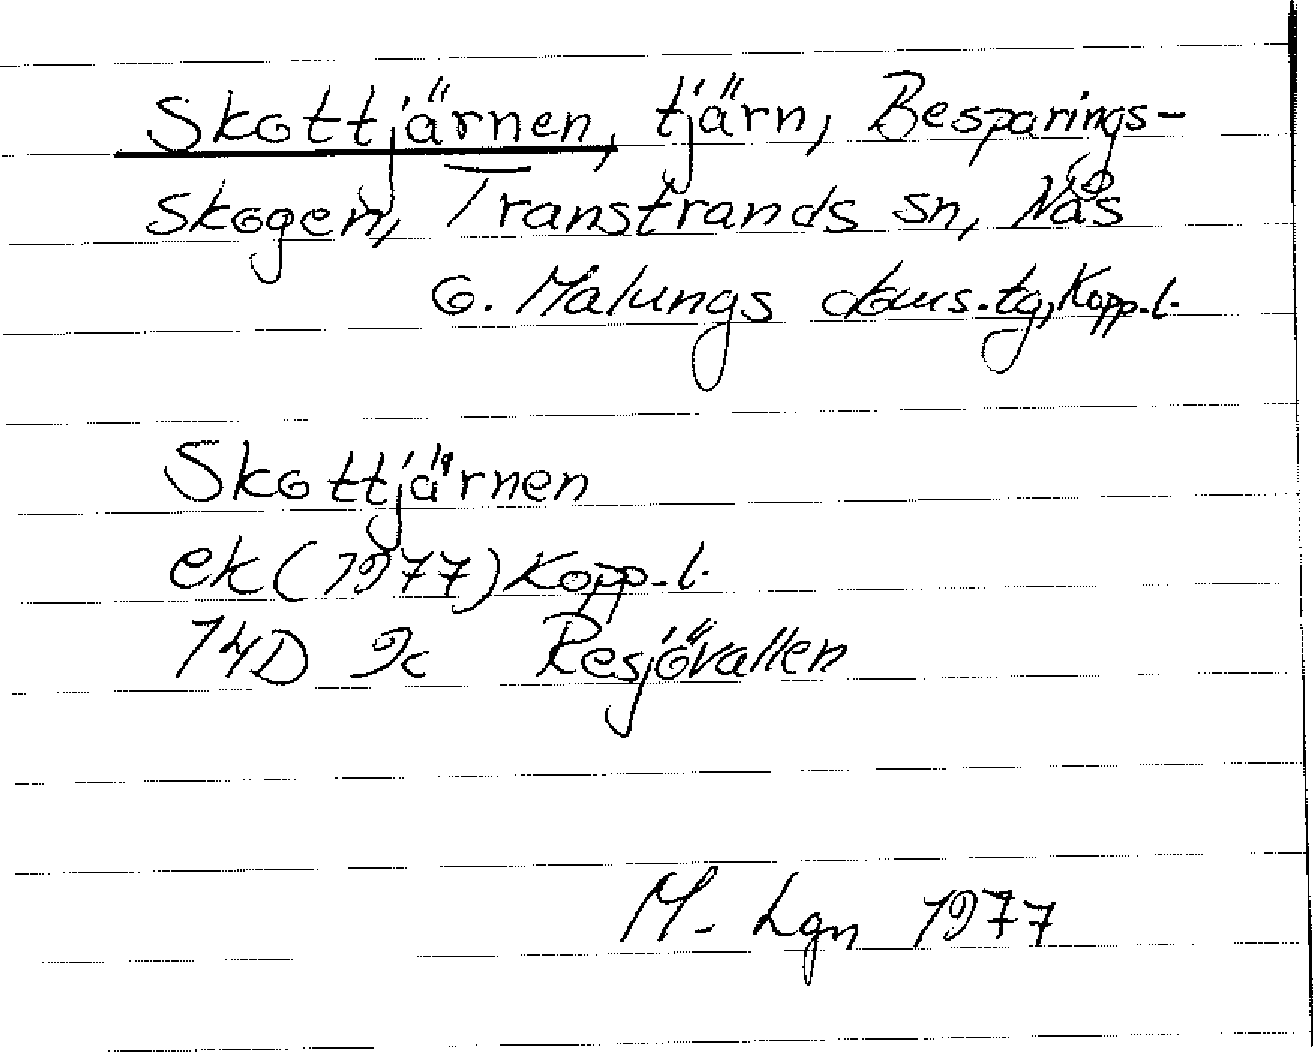 Skottjärnen, tjärn, Besparings-
skogen, Transtrands sn, Nås
o. Malungs doms.tg, Kopp.l.
Skottjärnen
ek (1977) Kopp.l.
14D 9c Resjövallen
M-Lgn 1977